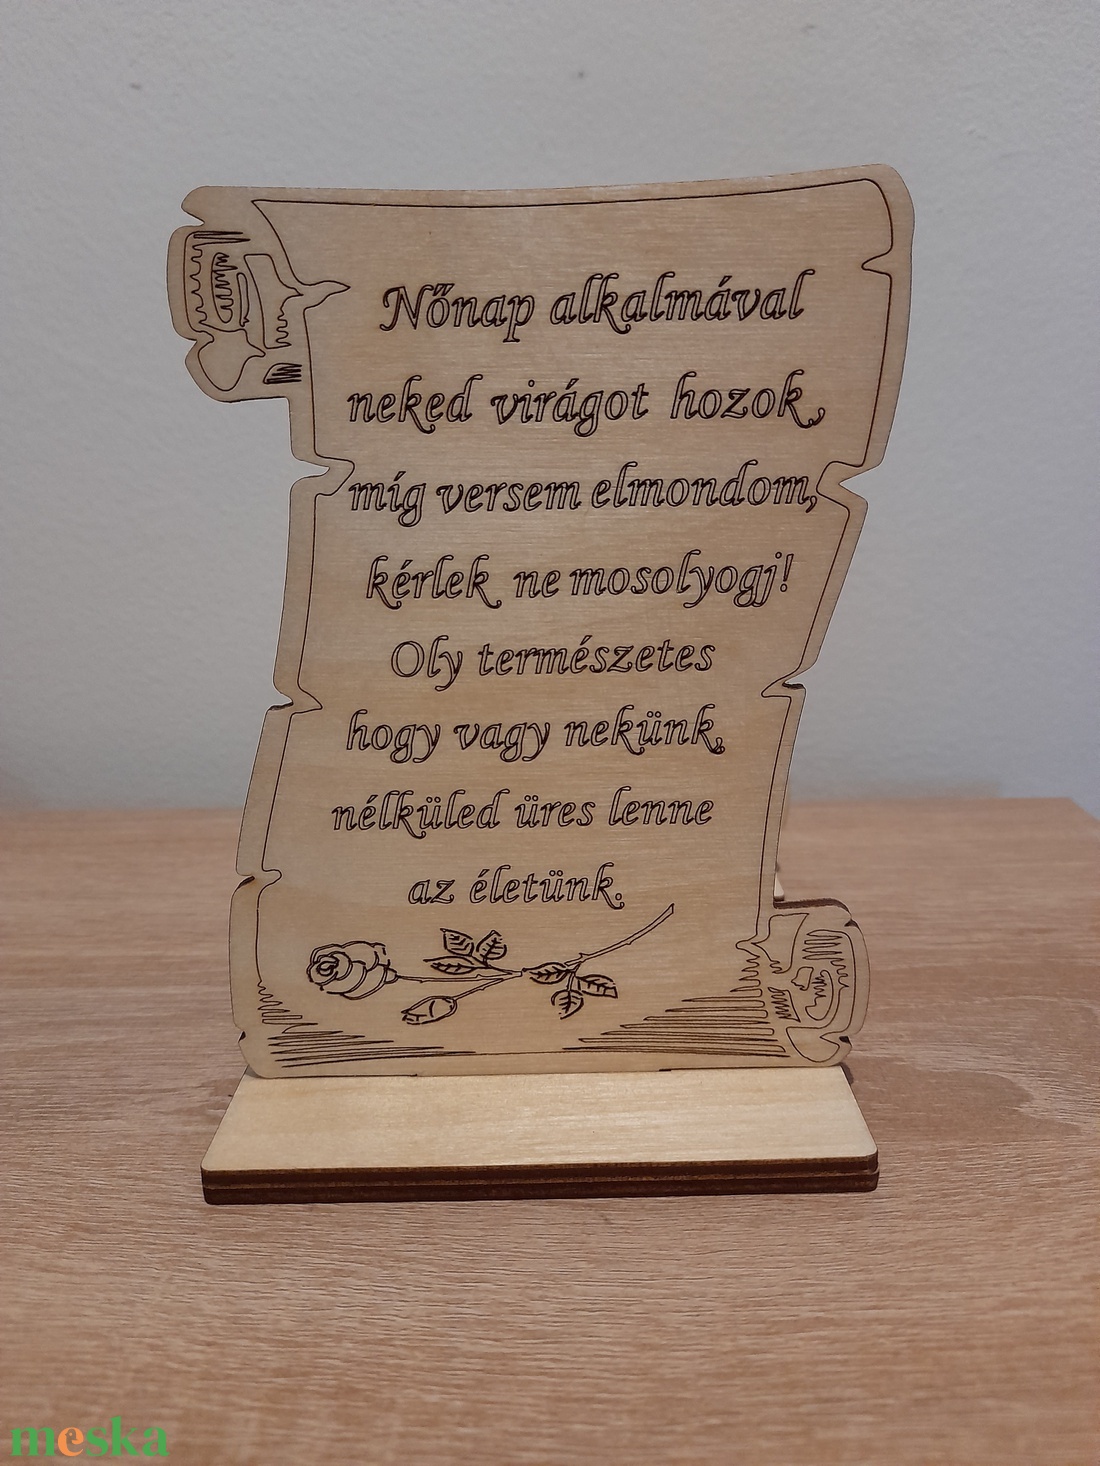 Nőnap alkalmával
neked virágot hozok,
míg versem elmondom,
kérlek ne mosolyogj!
Oly természetes
hogy vagy nekünk,
nélküled üres lenne
az életünk.
meska